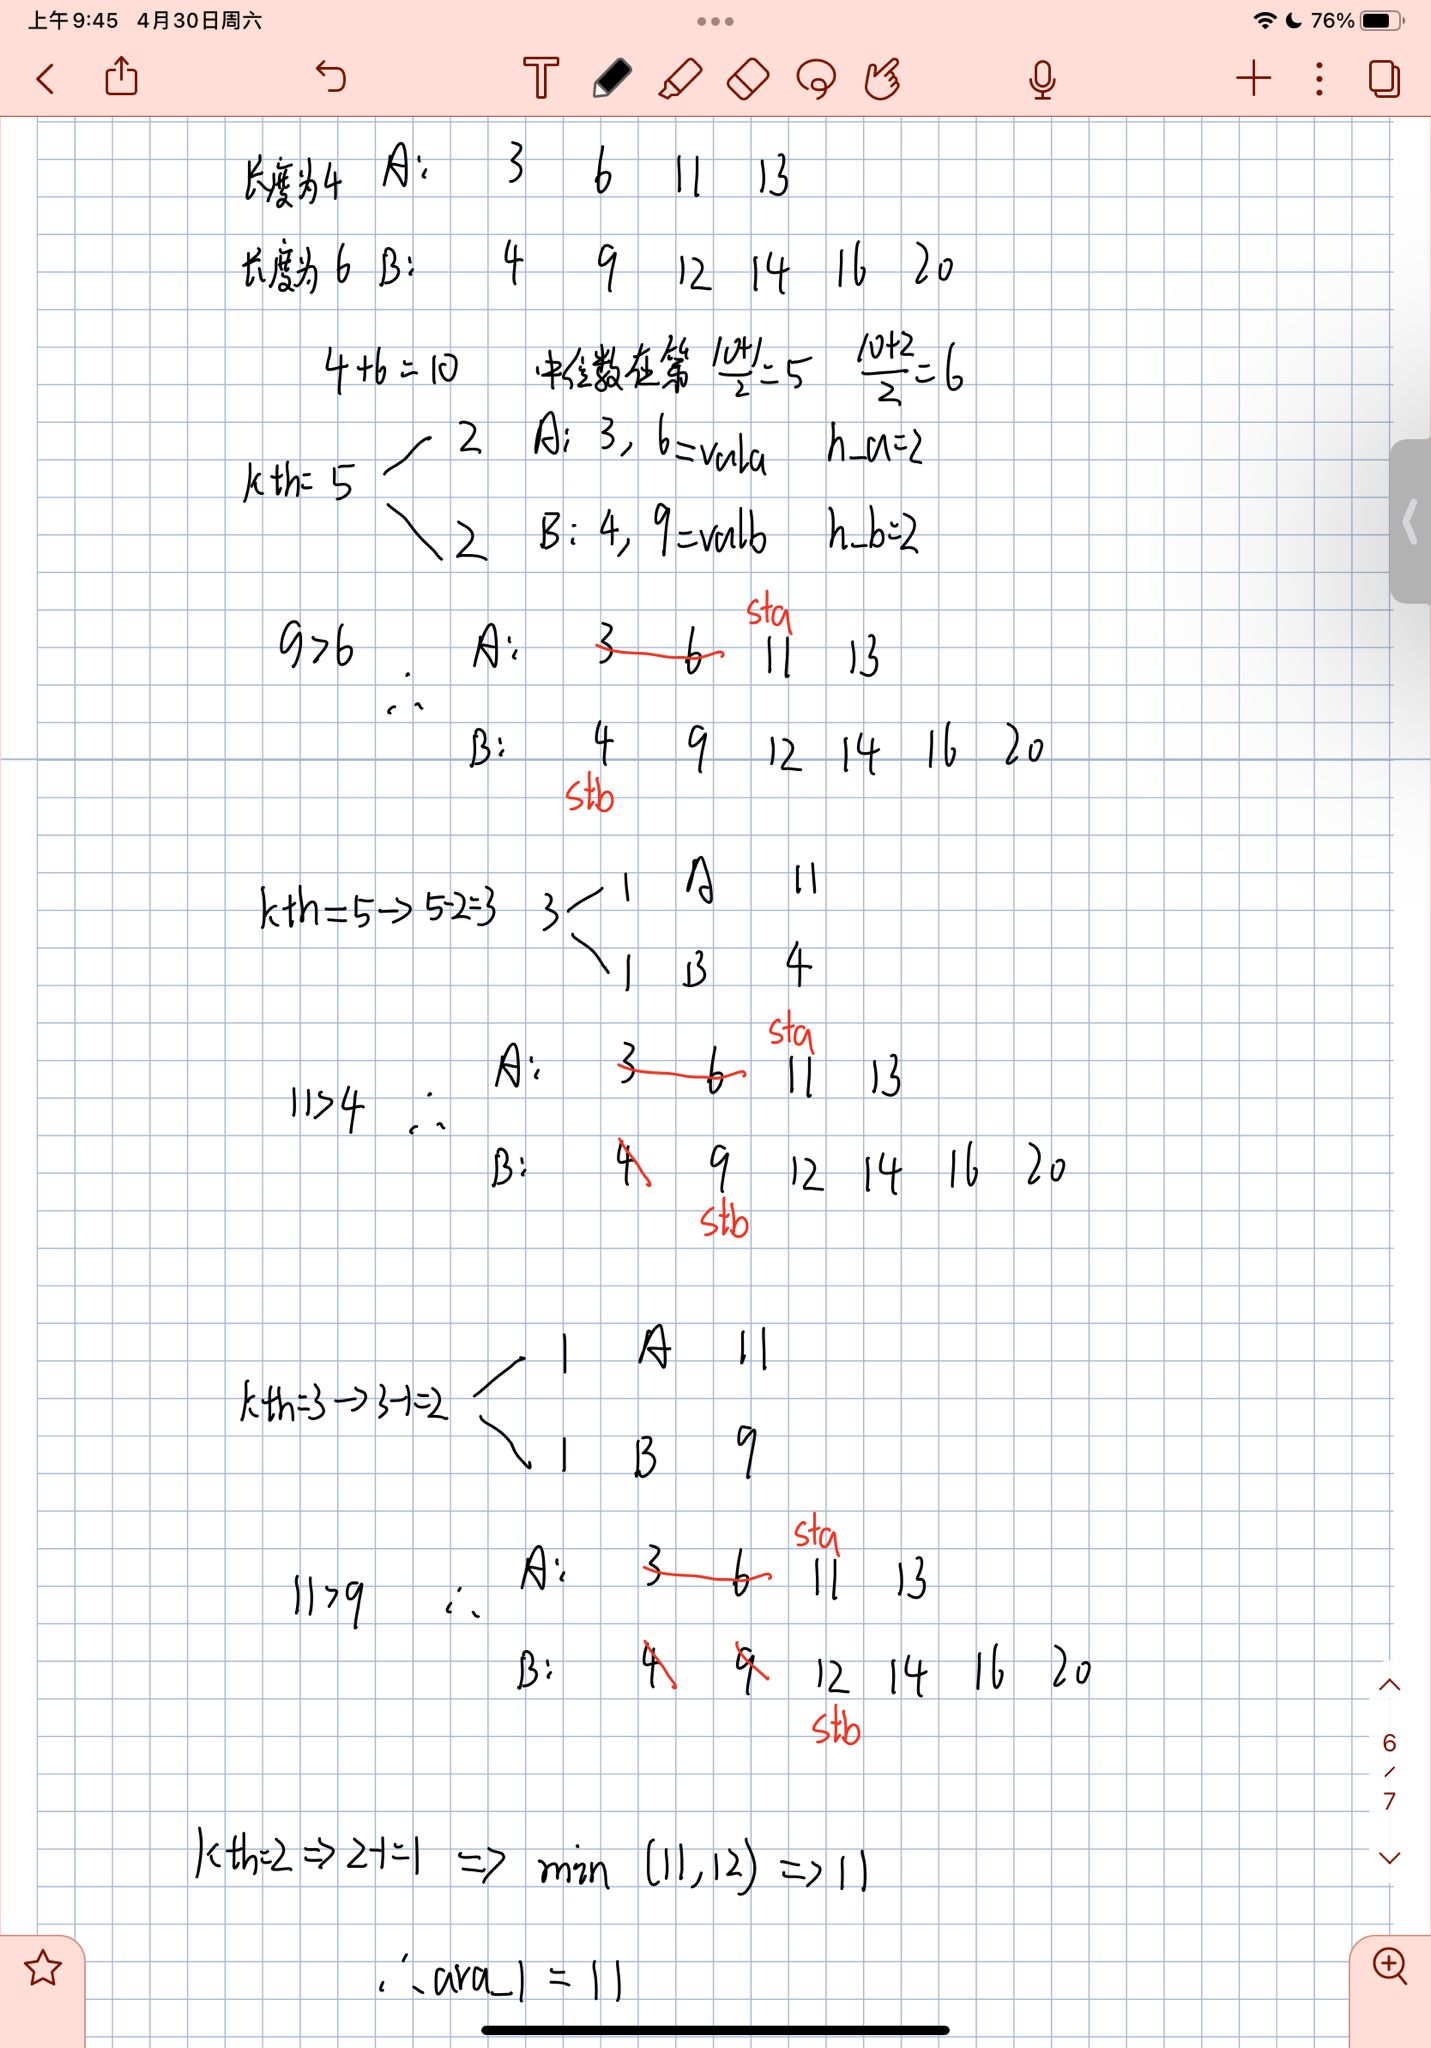 上午9:45 4月30日周六 76%
长度为4 A: 3 6 11 13
长度为6 B: 4 9 12 14 16 20
4+6=10 中位数在第 10+1/2=5 10+2/2=6
kth=5 2 A: 3, 6=vala h_a=2
2 B: 4, 9=valb h_b=2
sta
9>6 ∴ A: 3 6 11 13
B: 4 9 12 14 16 20
stb
kth=5→5-2=3 3 1 A 11
1 B 4
sta
11>4 ∴ A: 3 6 11 13
B: 4 9 12 14 16 20
stb
1 A 11
kth=3→3-1=2
1 B 9
sta
11>9 ∴ A: 3 6 11 13
B: 4 9 12 14 16 20
stb
kth=2⇒2-1=1 ⇒ min (11,12) ⇒11
∴ara_1 = 11
6
/
7